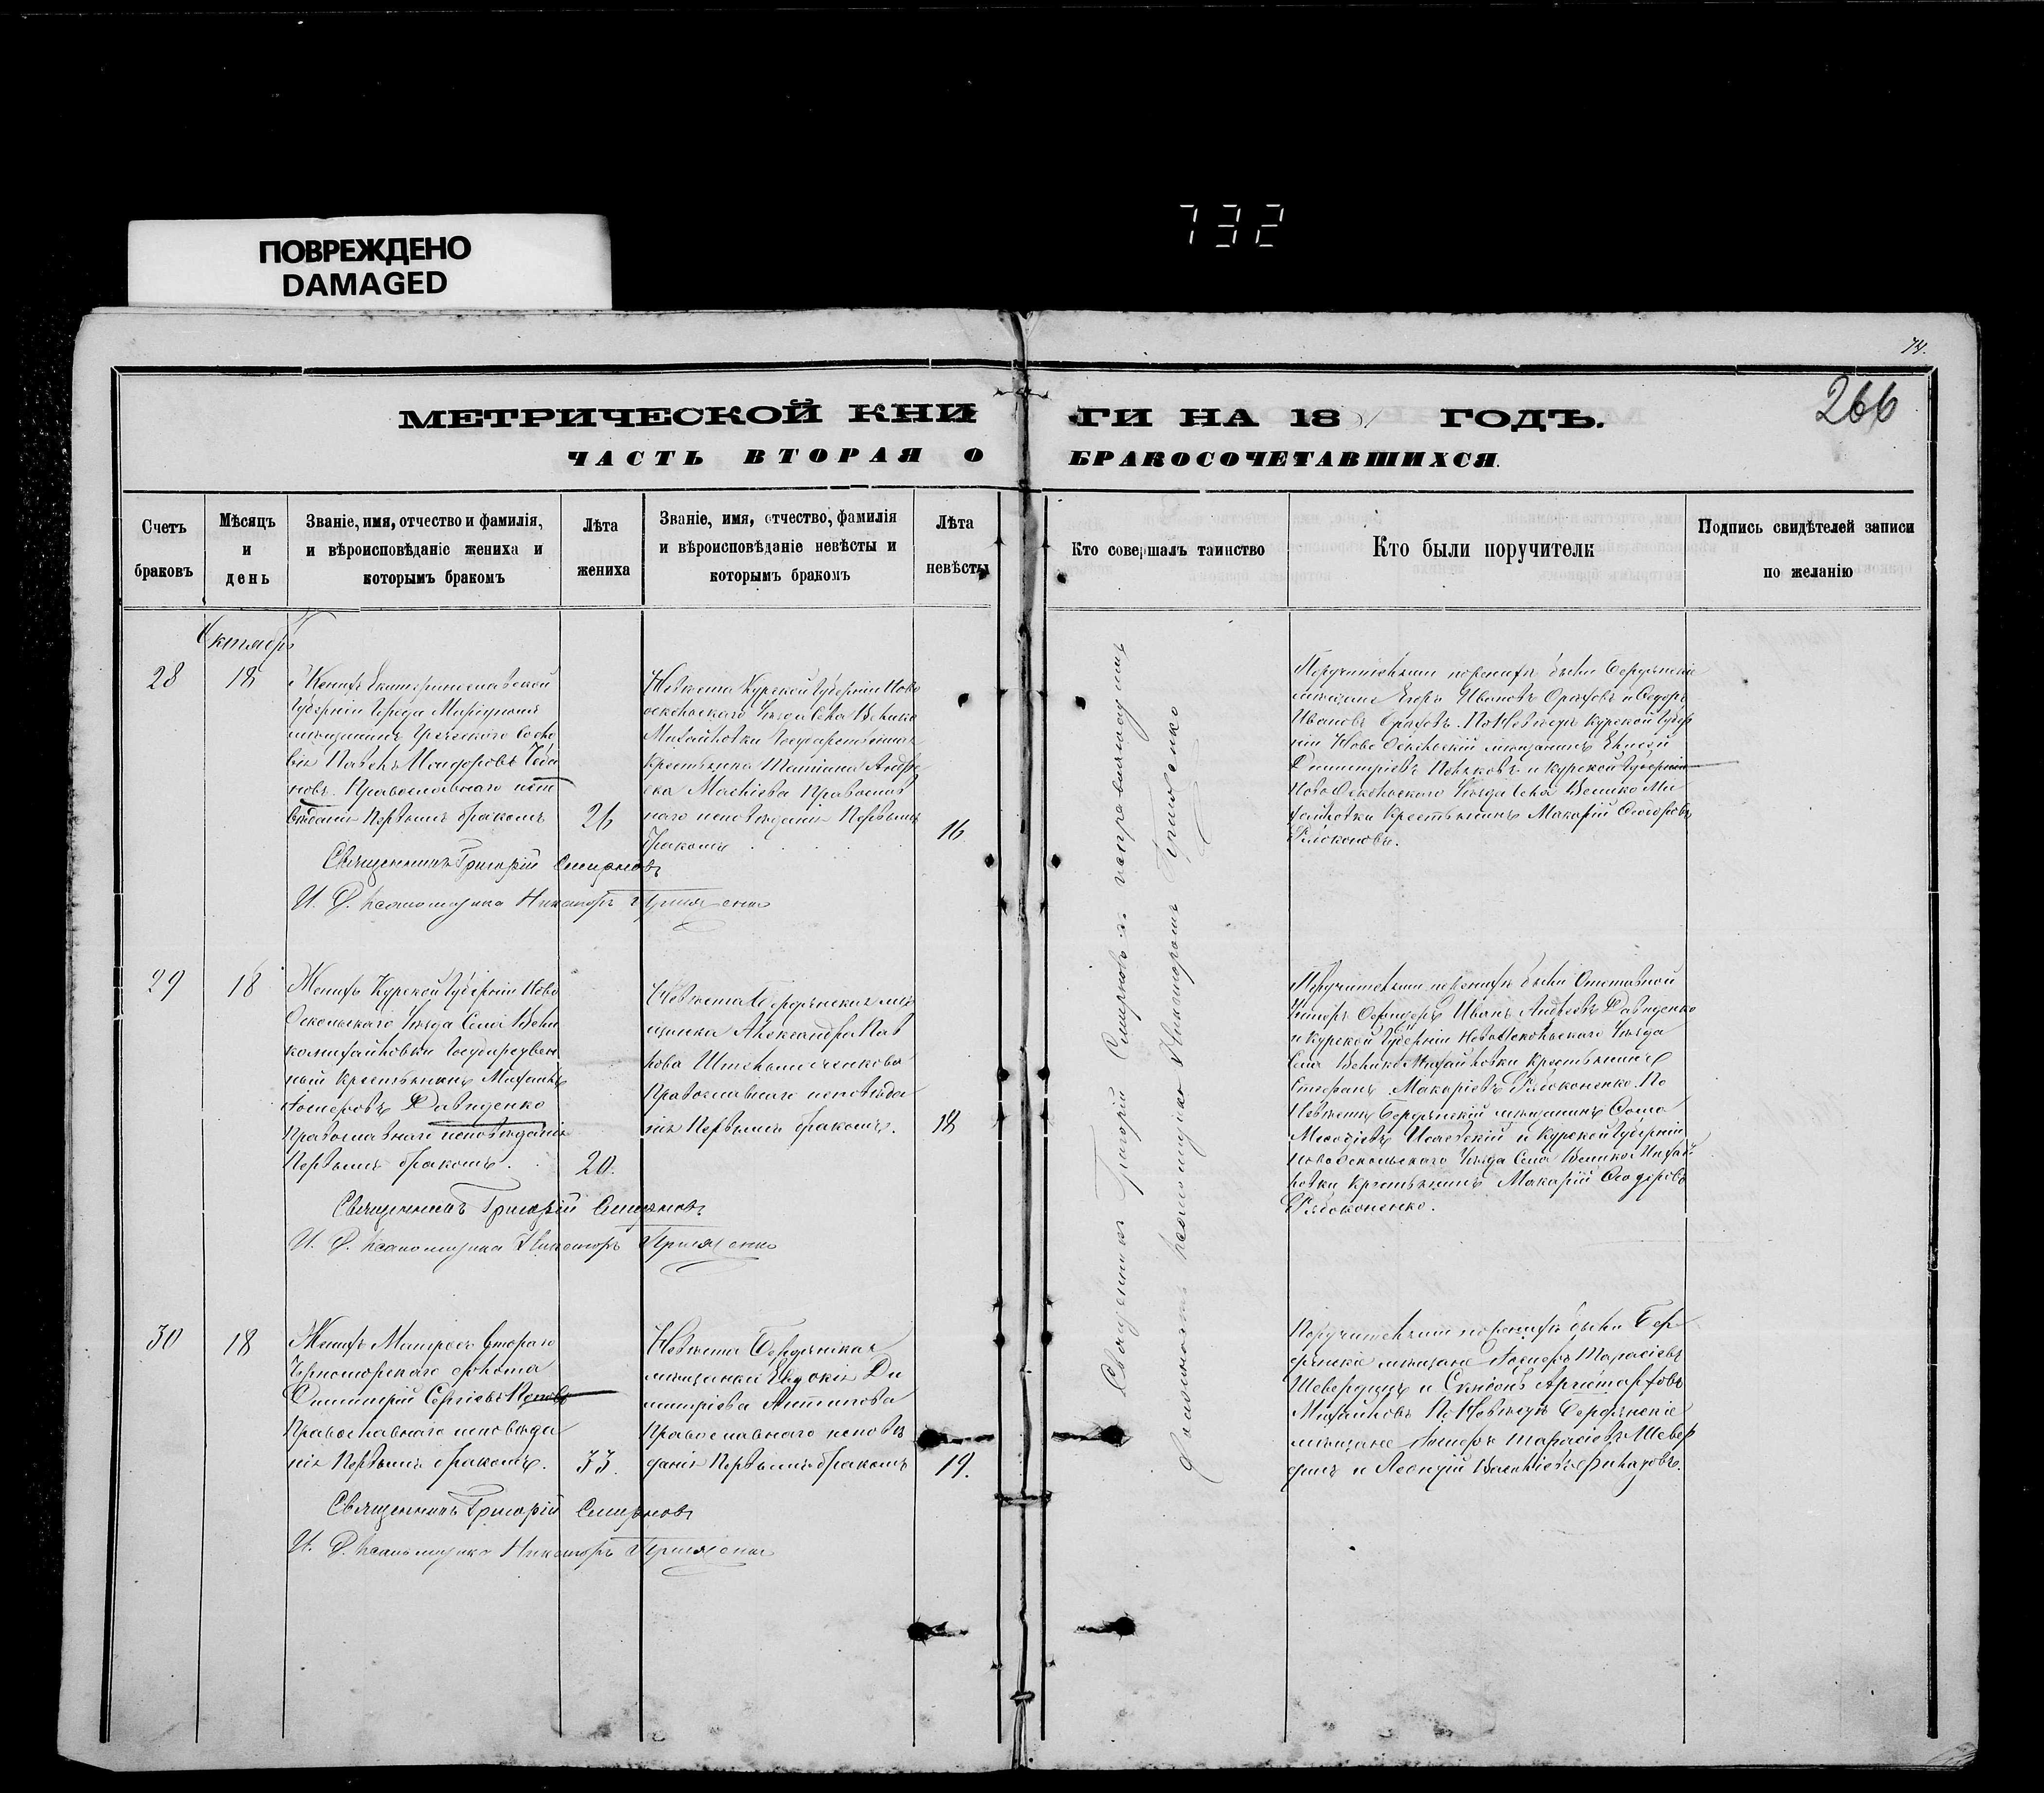 ПОВРЕЖДЕНО
DAMAGED
732
74.
266
МЕТРИЧЕСКОЙ КНИ ГИ НА 18 ГОДЪ.
ЧАСТЬ ВТОРАЯ О БРАКОСОЧЕТАВШИХСЯ.
Счетъ браковъ
Мѣсяцъ и день
Званіе, имя, отчество и фамилія,
и вѣроисповѣданіе жениха и
которымъ бракомъ
Лѣта жениха
Званіе, имя, отчество, фамилія
и вѣроисповѣданіе невѣсты и
которымъ бракомъ
Лѣта невѣсты
Кто совершалъ таинство
Кто были поручители
Подпись свидѣтелей записи
по желанію
Октябрь
28
18
Женихъ Екатеринославской
Губерніи Города Маріуполя
мѣщанинъ Греческаго Сосло
вія Павелъ
Православнаго испо
вѣданія Первымъ бракомъ
26
Невѣста Курской Губерніи Ново
оскольскаго Уѣзда Села Велико
Михайловки Государственная
Крестьянка Татіана Андре
ева Православ
наго исповѣданія Первымъ
бракомъ
16.
Поручителями по женихѣ были Бердянскіе
мѣщане Егоръ Ивановъ Ораховъ и Ѳедоръ
Ивановъ Ораховъ. По Невѣстѣ Курской Губер
ніи Ново Оскольскій мѣщанинъ Елисей
Димитріевъ Поляковъ и Курской Губерніи
Ново Оскольскаго Уѣзда Села Велико Ми
хайловки Крестьянинъ Макарій Ѳеодоровъ
Рябоконовъ.
Священникъ Григорій Смирновъ
И. Д. Псаломщика Никаноръ
29
18
Женихъ Курской Губерніи Ново
Оскольскаго Уѣзда Села Вели
комихайловки Государствен
ный Крестьянинъ Михаилъ
Давиденко
Православнаго исповѣданія
Первымъ бракомъ.
20.
Невѣста Бердянская мѣ
щанка Александра Пав
лова
Православнаго исповѣда
нія Первымъ бракомъ.
18
Поручителями по женихѣ были Отставной
Унтеръ Офицеръ Иванъ Андреевъ Давиденко
и Курской Губерніи Новооскольскаго Уѣзда
Села Велико Михайловки Крестьянинъ
Стефанъ Макаріевъ Рябоконенко. По
Невѣстѣ Бердянскій мѣщанинъ Ѳома
и Курской Губерніи
Новооскольскаго Уѣзда Села Велико Михай
ловки Крестьянинъ Макарій Ѳеодоровъ
Рябоконенко.
Священникъ Григорій Смирновъ
И. Д. Псаломщика Никаноръ
30
18
Женихъ Матросъ Втораго
Черноморскаго флота
Димитрій Сергіевъ Поповъ
Православнаго исповѣда
нія Первымъ бракомъ.
33.
Невѣста Бердянская
мѣщанка Евдокія Ди
митріева Антипова
Православнаго исповѣ
данія Первымъ бракомъ
19.
Поручителями по женихѣ были Бер
дянскіе мѣщане Іосифъ Тарасіевъ
и Симеонъ
Михайловъ По Невѣстѣ Бердянскіе
мѣщане Іосифъ Тарасіевъ
и Леонтій Василіевъ
Священникъ Григорій Смирновъ
И. Д. Псаломщика Никаноръ
Священникъ Григорій Смирновъ съ исправляющимъ
должность псаломщика Никаноромъ